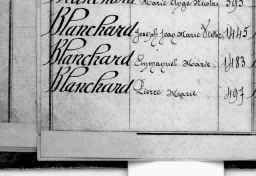 Marie Ange Nicolas 595
Blanchard Joseph Jean Marie 1445
Blanchard Emmanuel Marie 1483
Blanchard Pierre Marie 497